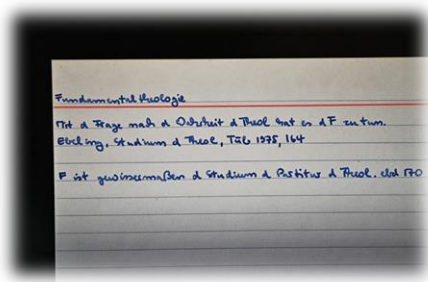 Fundamentaltheologie
Mit d Frage nach d Wahrheit d Theol hat es d F zu tun.
Ebeling, Studium d Theol, Tüb 1975, 164
F ist gewissermaßen d Studium d d Theol. ebd 170